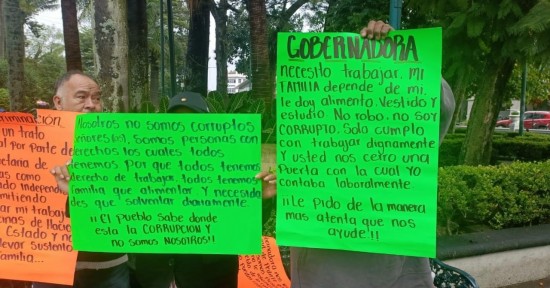 criminación
un trato
al por parte de
retaria de
as como
do independ
mitiendo
ar mi trabajo
Estado y no
llevar Sustento
familia...
Nosotros no somos corruptos
señores(a), Somos personas con
derechos los cuales todos
tenemos por que todos tenemos
derecho de trabajar. todos tenemos
familia que alimentar. y necesida
des que solventar diariamente
¡¡El pueblo sabe donde
esta la CORRUPCIÓN y
no somos NOSOTROS!!
GOBERNADORA
necesito trabajar. MI
FAMILIA depende "de mi.
le doy alimento. Vestido y
estudio. No robo, no soy
CORRUPTO. Solo cumplo
con trabajar dignamente
y usted nos cerro una
Puerta con la cual yo
contaba laboralmente
¡¡Le Pido de la manera
mas atenta que nos
ayude!!